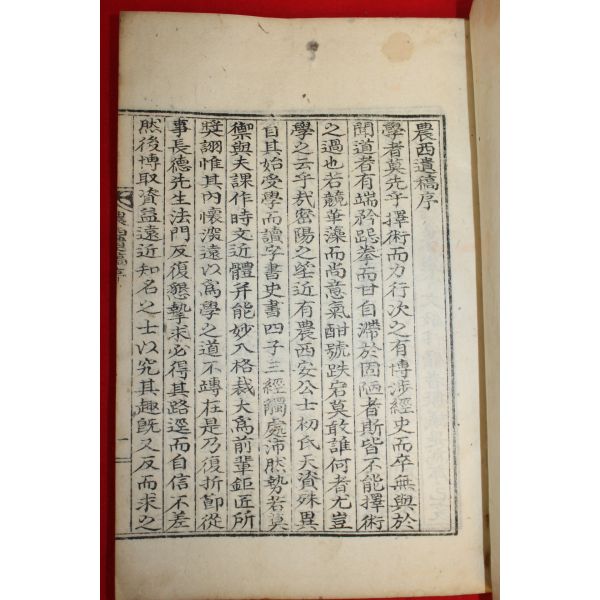 農西遺稿序
學者莫先乎擇術而力行次之有博涉經史而卒無與於
聞道者有端矜跽拳而甘自滯於固陋者斯皆不能擇術
之過也若競華藻而尚意氣酣號跌宕莫敢誰何者尤豈
學之云乎哉密陽之近有農西安公士初氏天資殊異
自其始受學而讀字書史書四子三經觸處沛然勢若莫
禦與夫課作時文近體并能妙入格裁大爲前輩鉅匠所
奬詡惟其內懷深遠以爲學之道不專在是乃復折節從
事長德先生法門反復懇摯求必得其路逕而自信不差
然後博取資益遠近知名之士以究其趣旣又反而求之
農西遺稿序
一